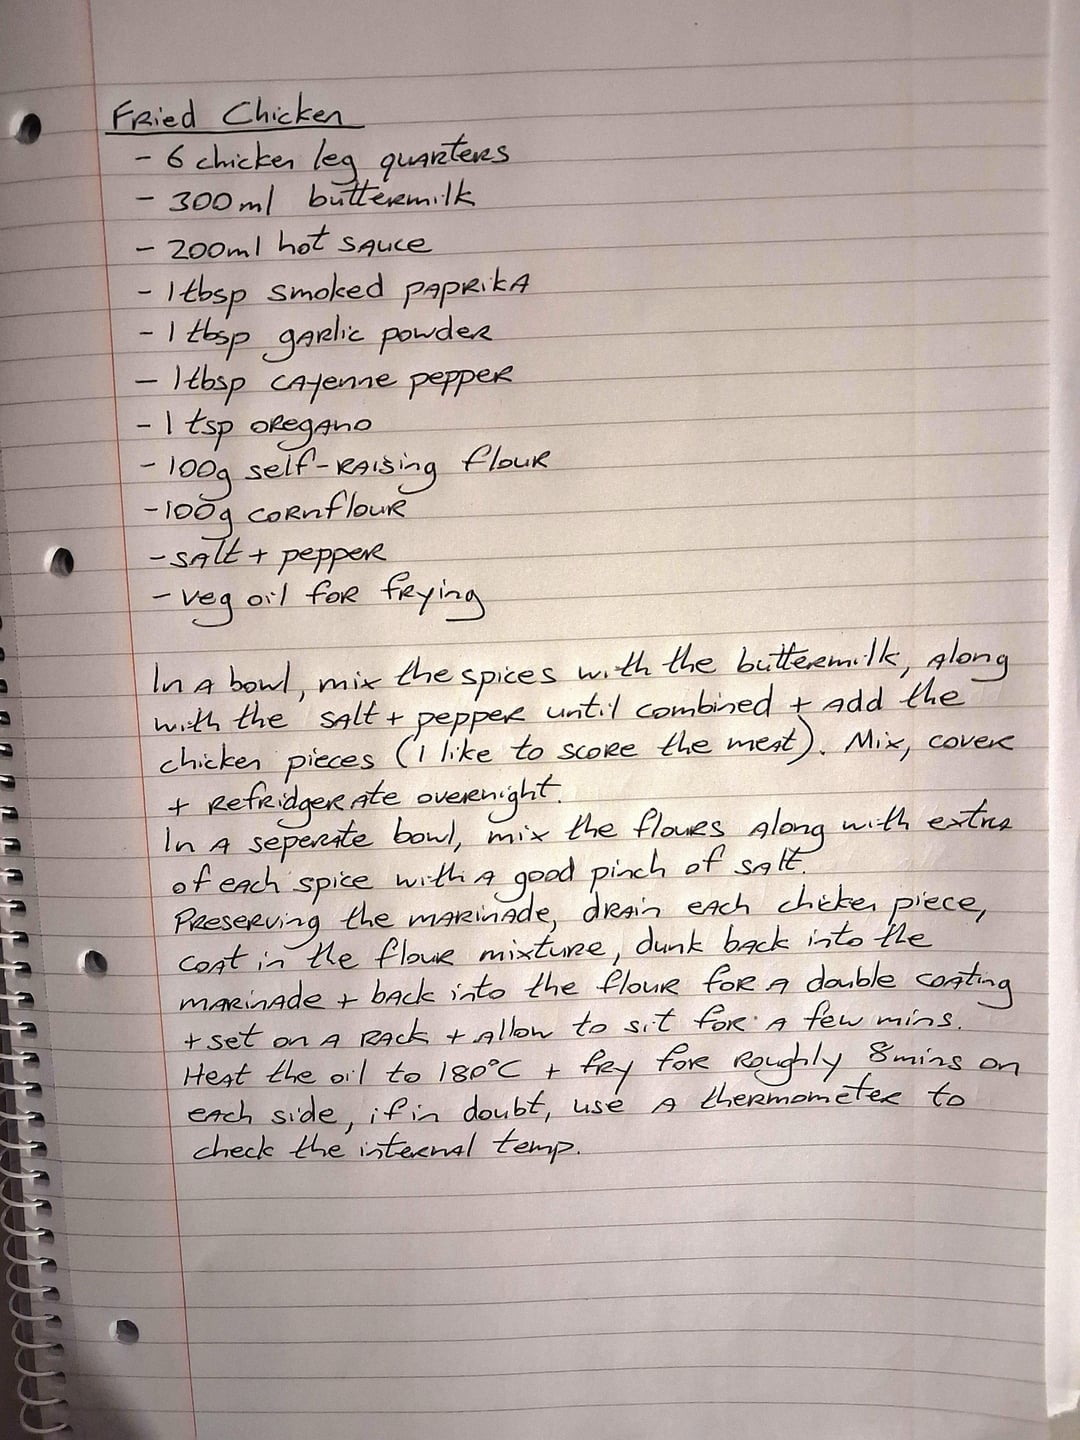 Fried Chicken
- 6 chicken leg quarters
- 300ml buttermilk
- 200ml hot sauce
- 1 tbsp smoked paprika
- 1 tbsp garlic powder
- 1 tbsp cayenne pepper
- 1 tsp oregano
- 100g self-raising flour
- 100g cornflour
- salt + pepper
- veg oil for frying
In a bowl, mix the spices with the buttermilk, along
with the salt + pepper until combined + add the
chicken pieces (I like to score the meat). Mix, cover
+ refridgerate overnight.
In a seperate bowl, mix the flours along with extra
of each spice with a good pinch of salt.
Preserving the marinade, drain each chicken piece,
coat in the flour mixture, dunk back into the
marinade + back into the flour for a double coating
+ set on a rack + allow to sit for a few mins.
Heat the oil to 180°C + fry for roughly 8mins on
each side, if in doubt, use a thermometer to
check the internal temp.